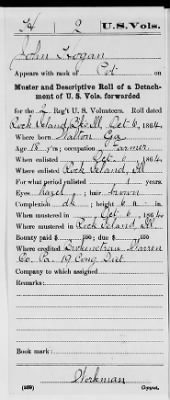 H 2 U.S. Vols.
John Hogan
Appears with rank of Pvt. on
Muster and Descriptive Roll of a Detachment of U. S. Vols. forwarded
for the 2 Reg't U. S. Volunteers. Roll dated
Rock Island Bks Ill, Oct 6, 1864.
Where born Walton Ga
Age 18 y'rs; occupation Farmer
When enlisted Oct 6, 1864
Where enlisted Rock Island, Ill
For what period enlisted 1 years.
Eyes hazel; hair brown
Complexion dk; height 6 ft. in.
When mustered in Oct 6, 1864
Where mustered in Rock Island Ill.
Bounty paid $ 100; due $ 100
Where credited Brokenstraw Warren
Co. Pa. 19 Cong Dist
Company to which assigned
Remarks:
Book mark:
Workman
(339) Copyist.